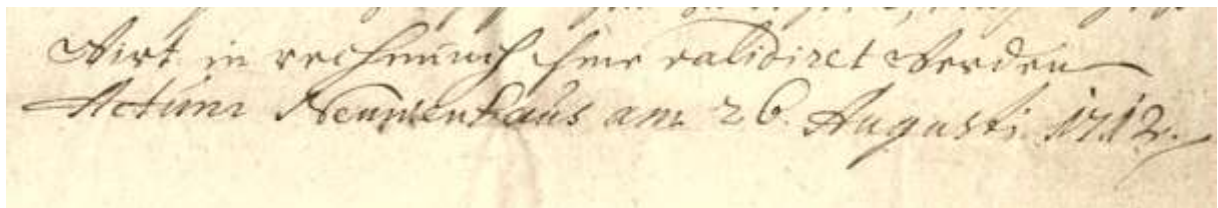 Wirt in rechnung ihme validiret werden
Actum Neuwenhaus am 26 Augusti 1712.